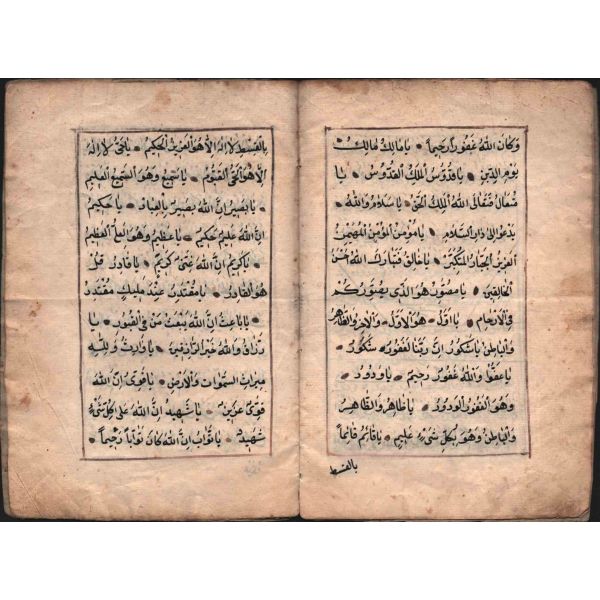 وَكَانَ اللّٰهُ غَفُورًا رَحِيمًا يَا مَالِكُ مَالِكِ
يَوْمِ الدِّينِ يَا قُدُّوسُ الْمَلِكُ الْقُدُّوسُ يَا
مُتَعَالُ فَتَعَالَى اللّٰهُ الْمَلِكُ الْحَقُّ يَا سَلَامُ وَاللّٰهُ
يَدْعُو اِلٰى دَارِ السَّلَامِ يَا مُؤْمِنُ الْمُؤْمِنُ الْمُهَيْمِنُ
الْعَزِيزُ الْجَبَّارُ الْمُتَكَبِّرُ يَا خَالِقُ فَتَبَارَكَ اللّٰهُ اَحْسَنُ
الْخَالِقِينَ يَا مُصَوِّرُ هُوَ الَّذِي يُصَوِّرُكُمْ
فِي الْاَرْحَامِ يَا اَوَّلُ هُوَ الْاَوَّلُ وَالْاٰخِرُ وَالظَّاهِرُ
وَالْبَاطِنُ يَا شَكُورُ اِنَّ رَبَّنَا لَغَفُورٌ شَكُورٌ
يَا غَفُورُ وَاللّٰهُ غَفُورٌ رَحِيمٌ يَا وَدُودُ
وَهُوَ الْغَفُورُ الْوَدُودُ يَا ظَاهِرُ وَالظَّاهِرُ
وَالْبَاطِنُ وَهُوَ بِكُلِّ شَيْءٍ عَلِيمٌ يَا قَائِمُ قَائِمًا
بِالْقِسْطِ
بِالْقِسْطِ لَا اِلٰهَ اِلَّا هُوَ الْعَزِيزُ الْحَكِيمُ يَا حَيُّ لَا اِلٰهَ
اِلَّا هُوَ الْحَيُّ الْقَيُّومُ يَا سَمِيعُ وَهُوَ السَّمِيعُ الْعَلِيمُ
يَا بَصِيرُ اِنَّ اللّٰهَ بَصِيرٌ بِالْعِبَادِ يَا حَكِيمُ
اِنَّ اللّٰهَ عَلِيمٌ حَكِيمٌ يَا عَظِيمُ وَهُوَ الْعَلِيُّ الْعَظِيمُ
يَا كَرِيمُ اِنَّ اللّٰهَ غَنِيٌّ كَرِيمٌ يَا قَادِرُ قُلْ
هُوَ الْقَادِرُ يَا مُقْتَدِرُ عِنْدَ مَلِيكٍ مُقْتَدِرٍ
يَا بَاعِثُ اِنَّ اللّٰهَ يَبْعَثُ مَنْ فِي الْقُبُورِ يَا
رَزَّاقُ وَاللّٰهُ خَيْرُ الرَّازِقِينَ يَا وَارِثُ وَلِلّٰهِ
مِيرَاثُ السَّمٰوَاتِ وَالْاَرْضِ يَا قَوِيُّ اِنَّ اللّٰهَ
قَوِيٌّ عَزِيزٌ يَا شَهِيدُ اِنَّ اللّٰهَ عَلٰى كُلِّ شَيْءٍ
شَهِيدٌ يَا تَوَّابُ اِنَّ اللّٰهَ كَانَ تَوَّابًا رَحِيمًا